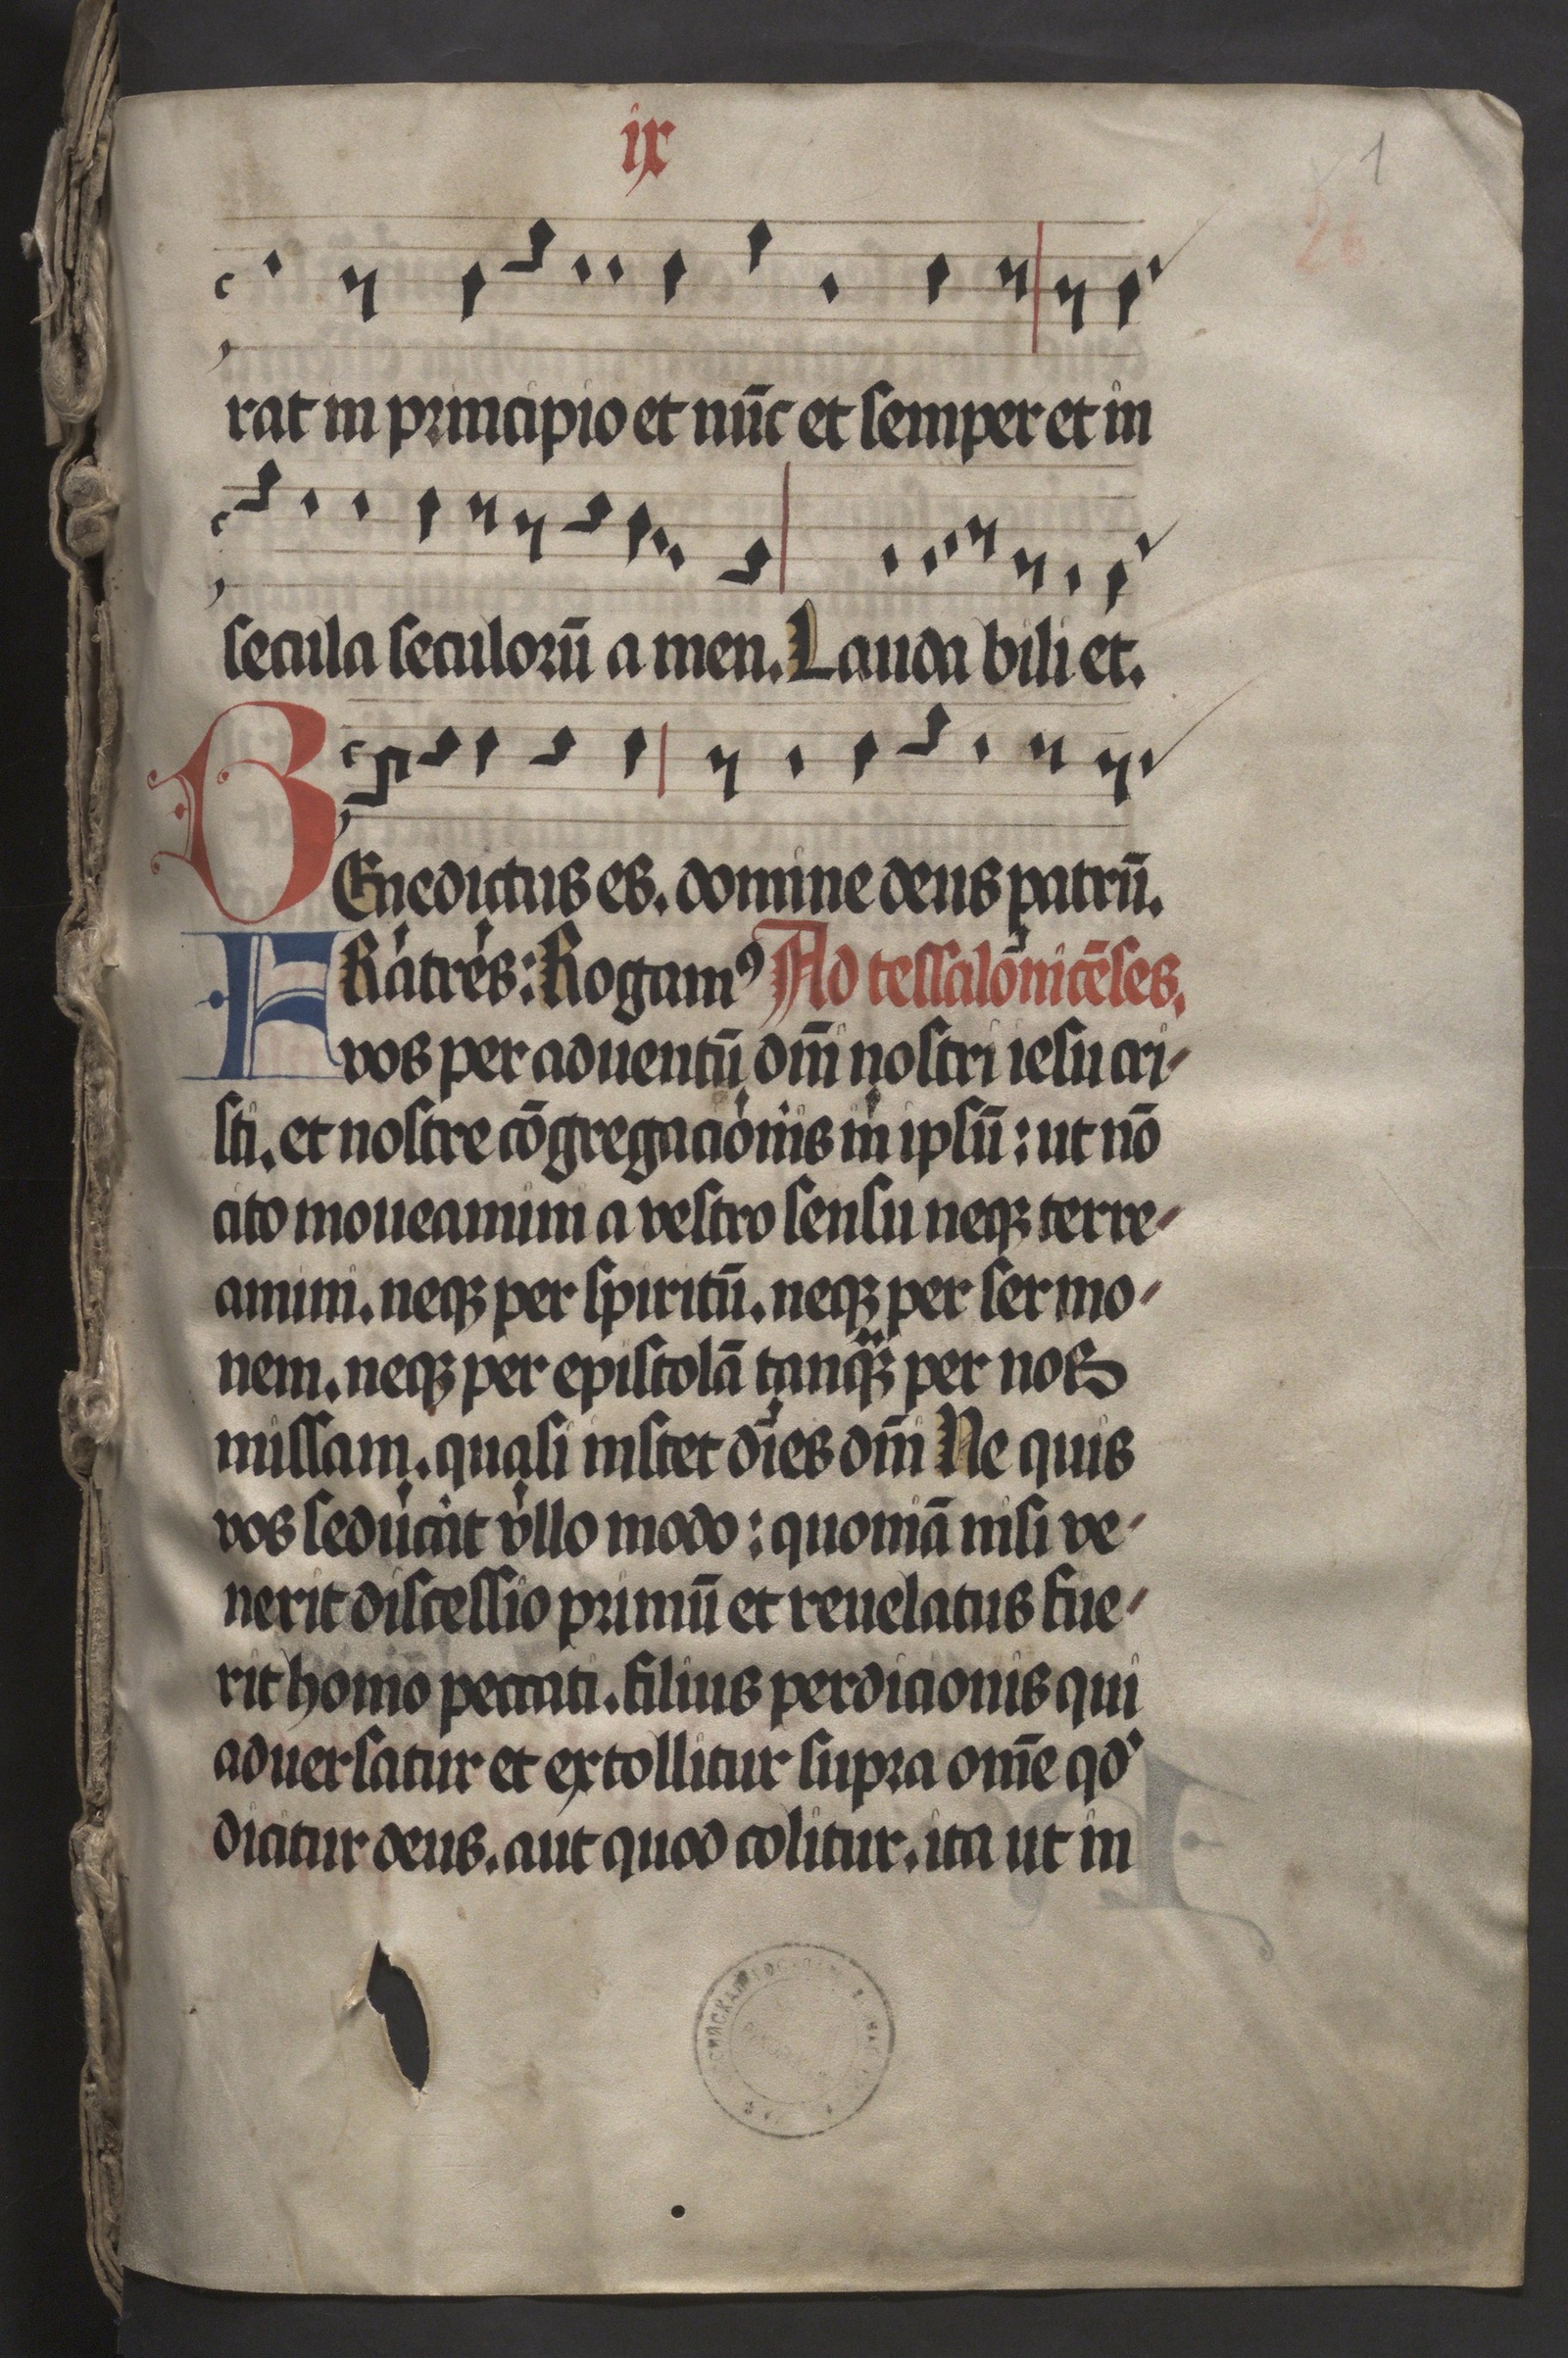 ix
1
26
rat in principio et nūc et semper et in
secula seculorū a men. Lauda bili et.
BEnedictus es. domine deus patrū.
FRatres: Rogamꝰ Ad tessalōnicēses.
vos per aduentū dn̄i nostri iesu cri-
sti. et nostre cōgregacionis in ipsū: ut nō
cito moueamini a vestro sensu neqꝫ terre-
amini. neqꝫ per spiritū. neqꝫ per sermo-
nem. neqꝫ per epistolā tanqꝫ per nos
missam. quasi instet dies dn̄i Ne quis
vos seducat vllo modo: quoniā nisi ve-
nerit discessio primū et reuelatus fue-
rit homo peccati. filius perdicionis qui
aduersatur et extollitur supra om̄e qd'
dicitur deus. aut quod colitur. ita ut in